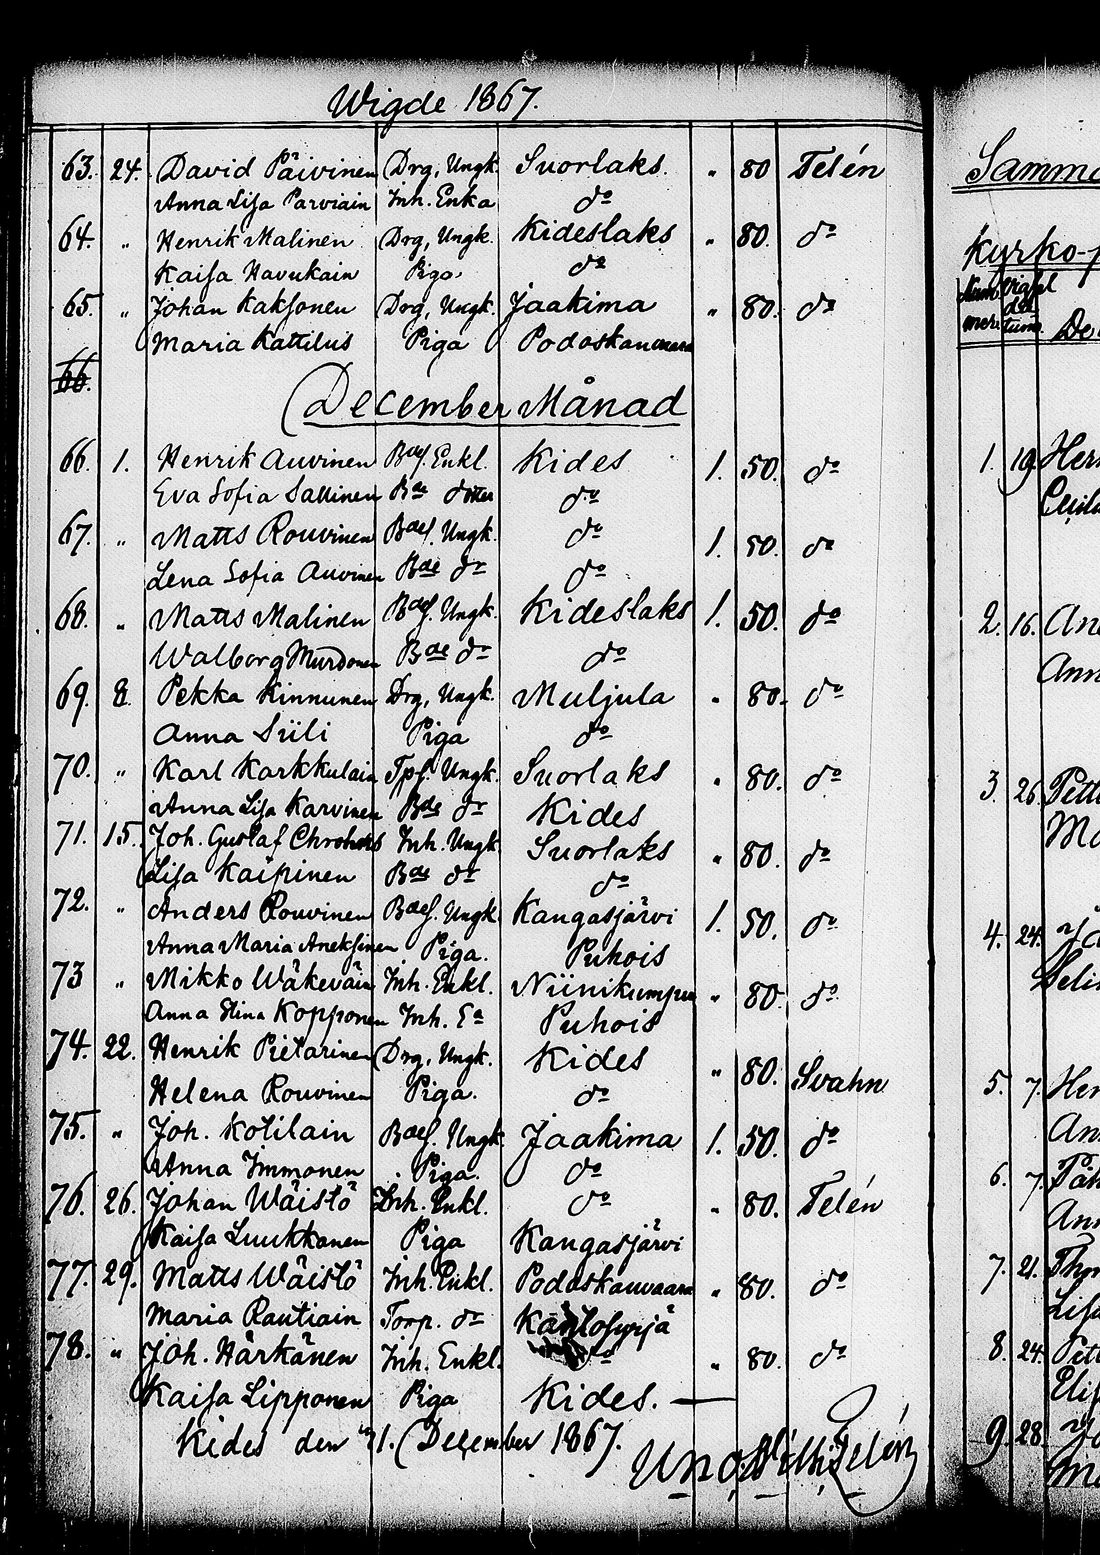 Wigde 1867.
63. 24. David Päivinen Drg, Ungk. Suorlaks. " 80 Telén
Anna Lisa Parviain Inh. Enka do
64. " Henrik Malinen Drg, Ungk. Kideslaks " 80. do
Kaisa Havukain Piga do
65. " Johan Kaksonen Drg, Ungk. Jaakima " 80. do
Maria Kattilus Piga Podoskauvaara
66.
December Månad
66. 1. Henrik Auvinen Bdes. Enkl. Kides 1. 50. do
Eva Sofia Sallinen Bde dotter do
67. " Matts Rouvinen Bdes. Ungk. do 1. 50. do
Lena Sofia Auvinen Bde dr do
68. " Matts Malinen Bdes. Ungk. Kideslaks 1. 50. do
Walborg Murdonen Bde dr do
69. 8. Pekka Kinnunen Drg, Ungk. Muljula " 80. do
Anna Siili Piga do
70. " Karl Karkkulain Tps. Ungk. Suorlaks " 80. do
Anna Lisa Karvinen Bde dr Kides
71. 15. Joh. Gustaf Inh. Ungk. Suorlaks " 80. do
Lisa Kaipinen Bde dr do
72. " Anders Rouvinen Bdes. Ungk. Kangasjärvi 1. 50. do
Anna Maria Aneksinen Piga. Puhois
73 " Mikko Wäkeväin Inh. Enkl. Niinikumpu " 80. do
Anna Elina Kopponen Inh. Ea Puhois
74. 22. Henrik Pietarinen Drg, Ungk. Kides " 80. Svahn
Helena Rouvinen Piga. do
75. " Joh. Kotilain Bdes. Ungk. Jaakima 1. 50. do
Anna Immonen Piga. do
76. 26. Johan Wäistö Inh. Enkl. do " 80. Telén
Kaisa Luukkanen Piga Kangasjärvi
77. 29. Matts Wäistö Inh. Enkl. Podoskauvaara " 80. do
Maria Rautiain Torp. dr
78. " Joh. Härkänen Inh. Enkl. do " 80. do
Kaisa Lipponen Piga Kides.
Kides den 31. December 1867.
Uno Telén
Kyrko-
Num mer Vigsel da tum
1. 19.
2. 16.
3. 26.
4. 24.
5. 7.
6. 7.
7. 21.
8. 24.
9. 28.